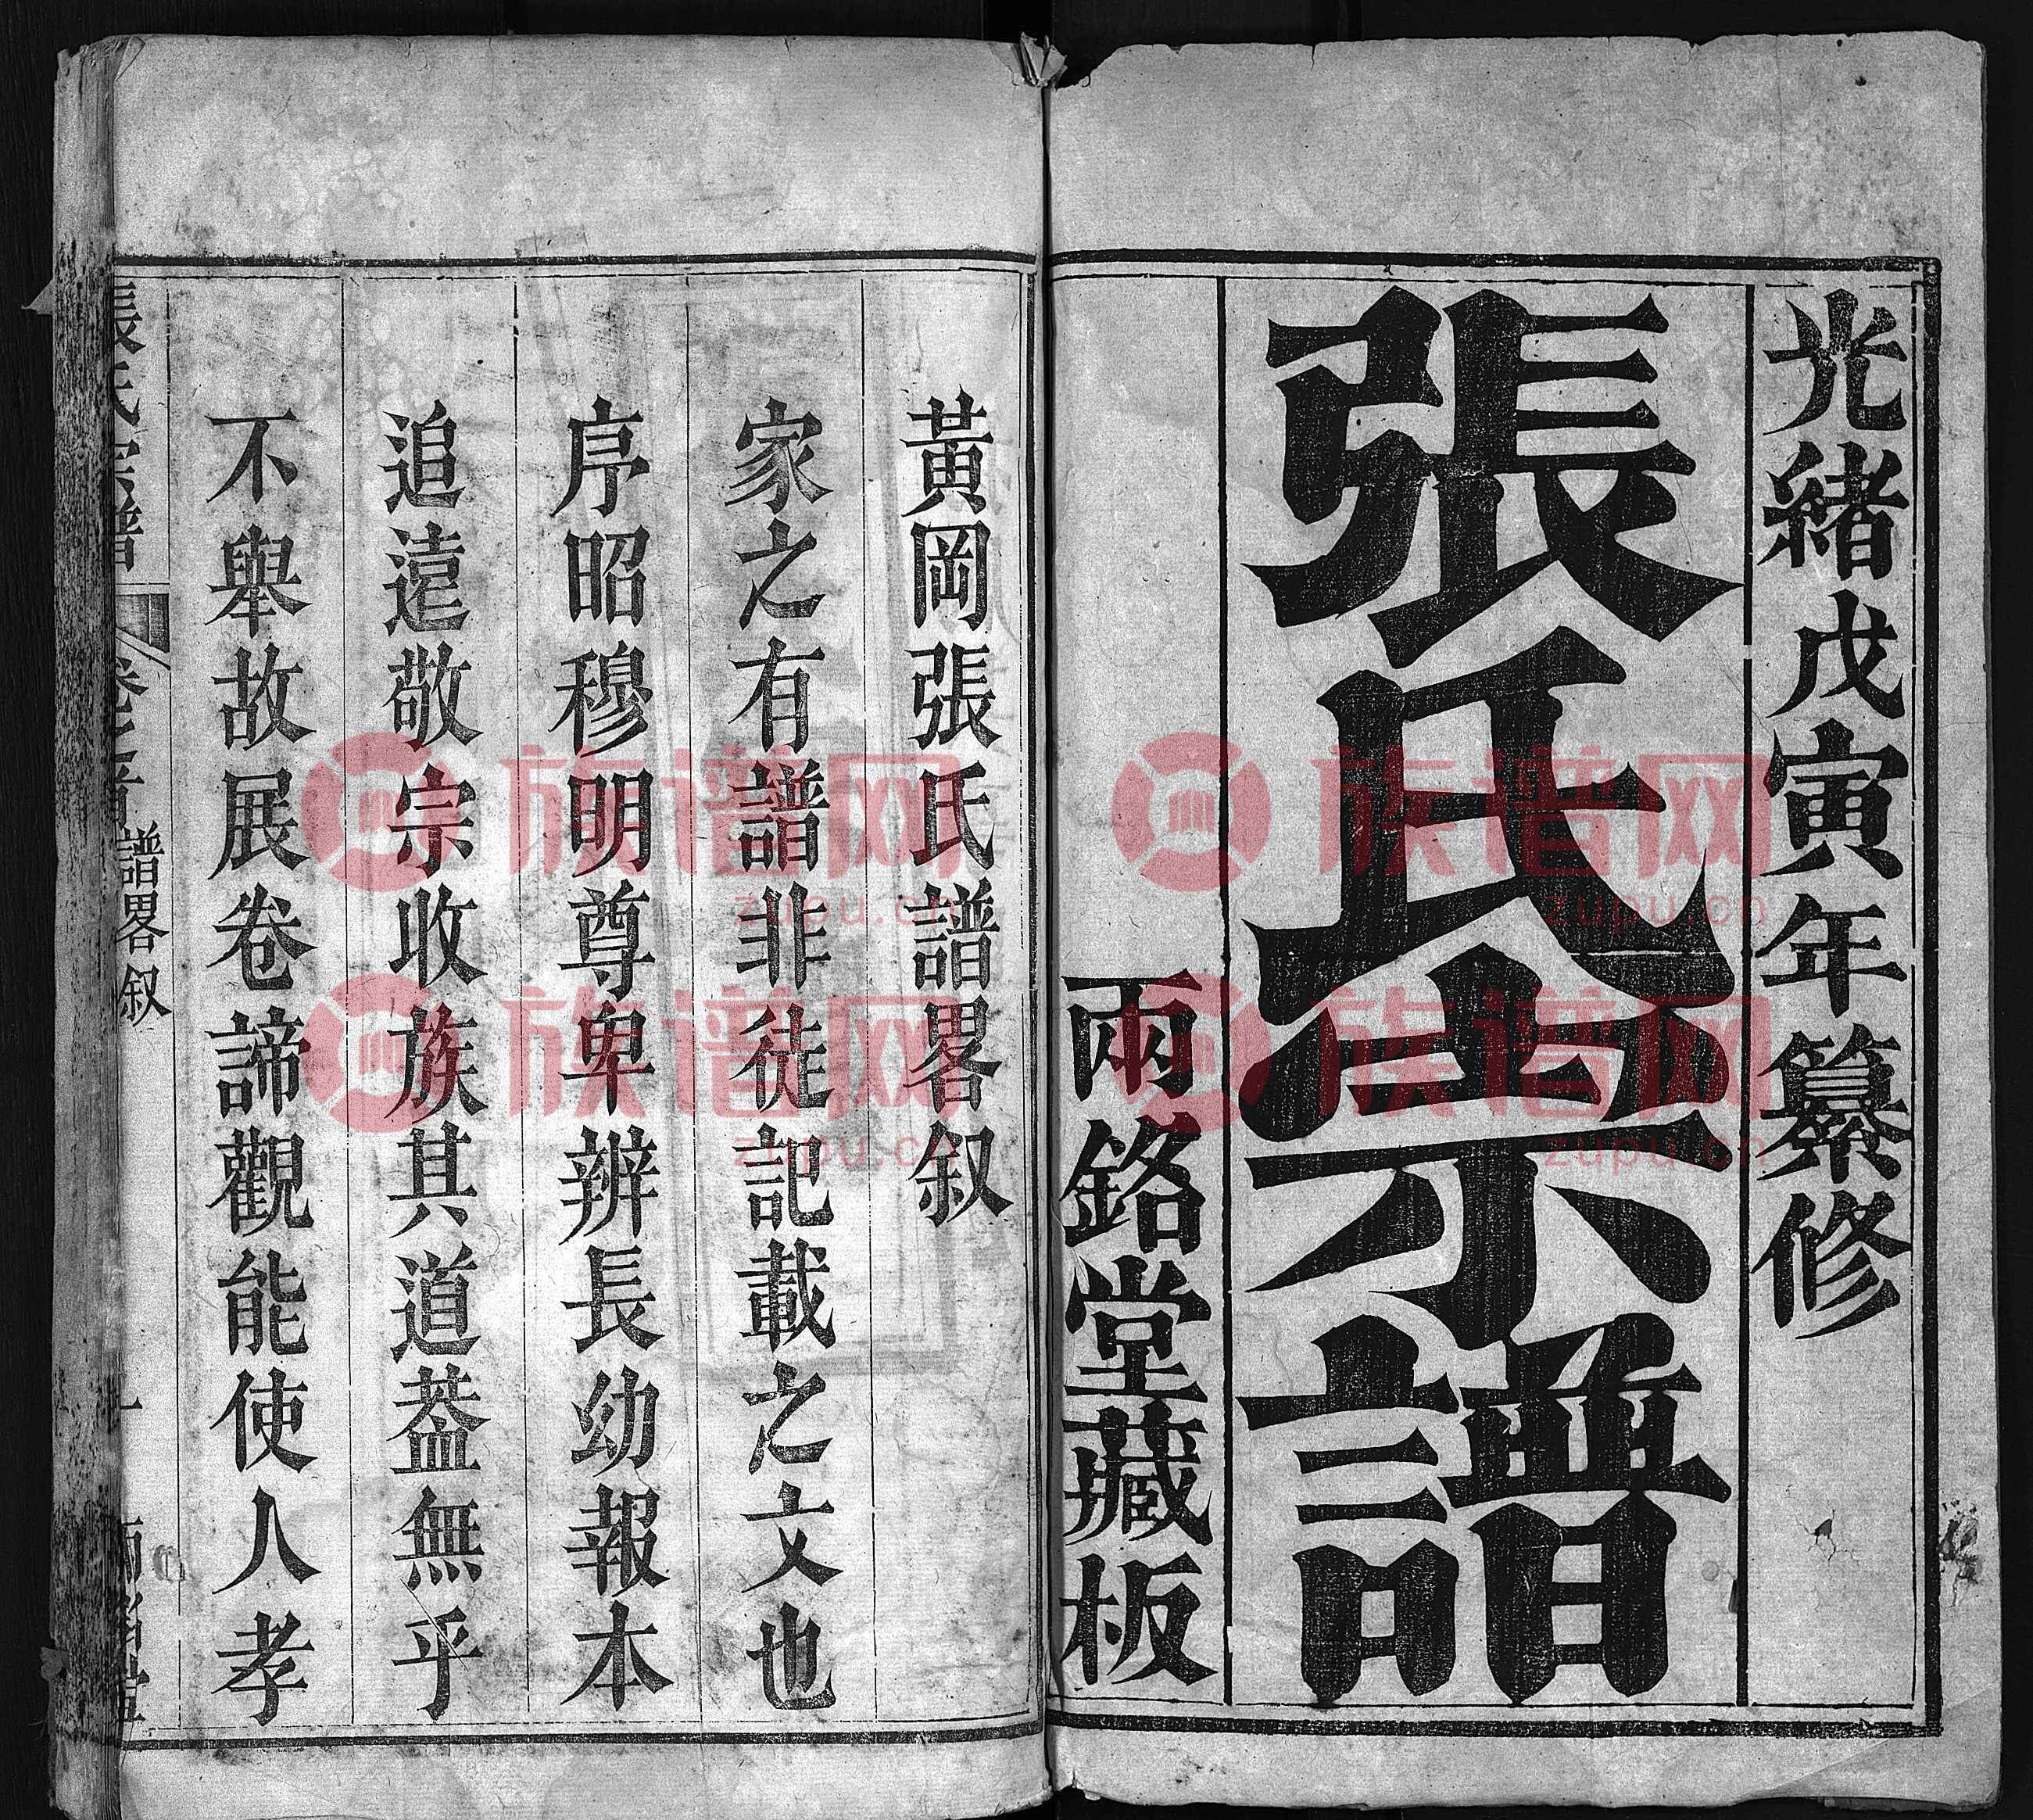 光緒戊寅年纂修
張氏宗譜
兩銘堂藏板
黃岡張氏譜畧叙
家之有譜非徒記載之文也
序昭穆明尊卑辨長幼報本
追遠敬宗收族其道葢無乎
不舉故展卷諦觀能使人孝
張氏宗譜
譜畧叙
族谱网
zupu.cn
族谱网
zupu.cn
族谱网
zupu.cn
族谱网
zupu.cn